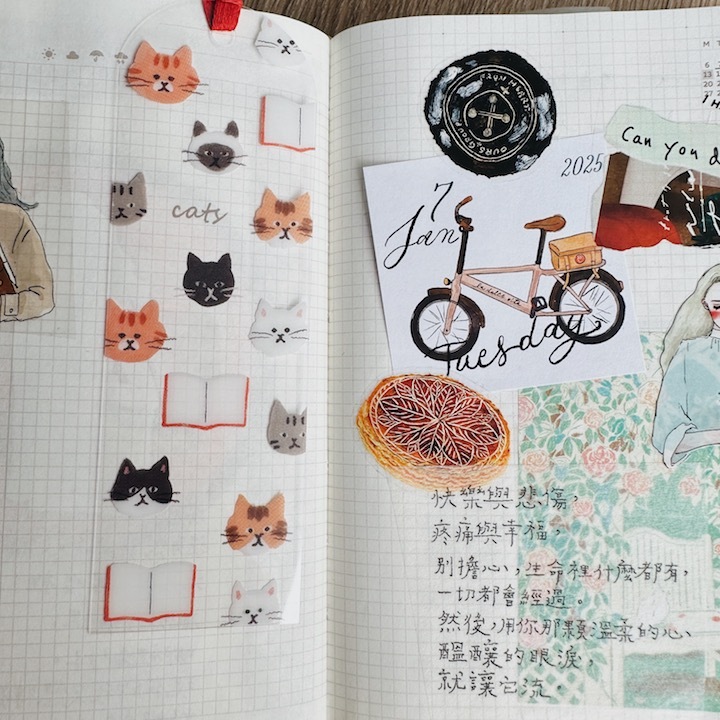 cats
M T
6
13
20
27
FROM HEART
2025
7
Jan
Tuesday
Can you d
快樂與悲傷，
疼痛與幸福，
別擔心，生命裡什麼都有，
一切都會經過。
然後，用你那顆溫柔的心、
醞釀的眼淚，
就讓它流。